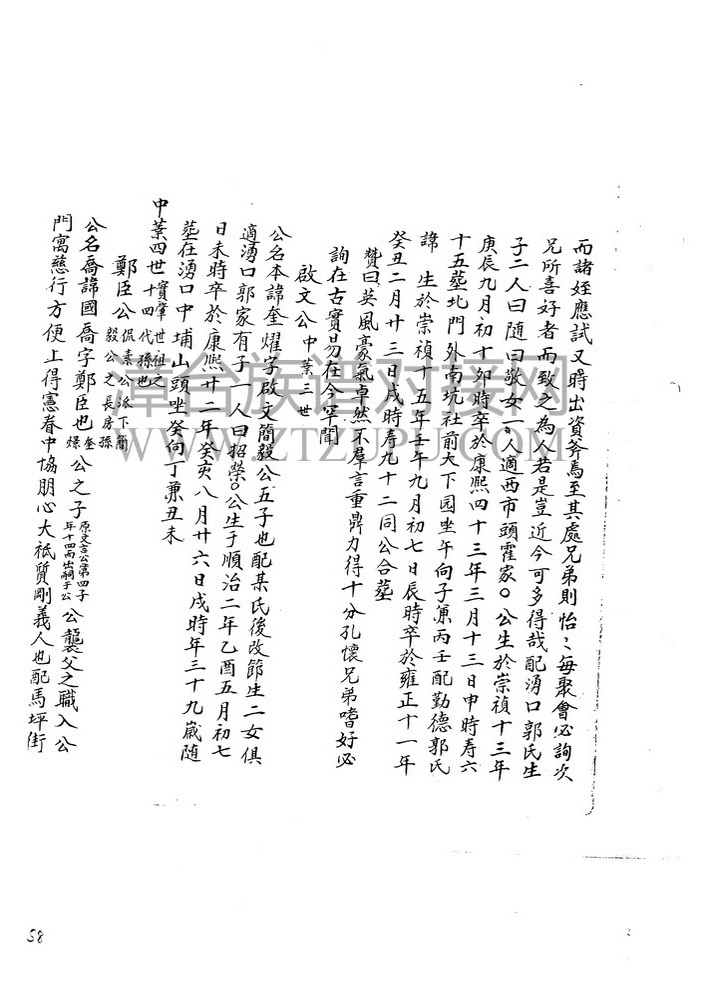 而諸姪應試又時出資斧焉至其處兄弟則怡〻每聚會必詢次
兄所喜好者而致之為人若是豈近今可多得哉配湧口郭氏生
子二人曰随曰敬女一人適西市頭霍家〇公生於崇禎十三年
庚辰九月初十卯時卒於康熙四十三年三月十三日申時寿六
十五塟北門外南坑社前大下园坐午向子兼丙壬配勤德郭氏
諱 生於崇禎十五年壬午九月初七日辰時卒於雍正十一年
癸丑二月廿三日戌時寿九十二同公合塟
贊曰英風豪氣卓然不羣言重鼎力得十分孔懷兄弟嗜好必
詢在古實易在今罕聞
啟文公中葉三世
公名本諱奎燿字啟文簡毅公五子也配某氏後改節生二女俱
適湧口郭家有子一人曰招榮〇公生于順治二年乙酉五月初七
日未時卒於康熙廿二年癸亥八月廿六日戌時年三十九歲随
塟在湧口中埔山頭坐癸向丁兼丑未
中葉四世實肇世祖之十四代孫也
鄭臣公侃素公派下簡毅公之長房孫
公名喬諱國喬字鄭臣也奎燝公之子原文言公第四子年十四嗣出于公公襲父之職入公
門寓慈行方便上得憲眷中協朋心大祇質剛義人也配馬坪街
58
澤台族谱对接网
WWW.ZTZUPU.COM